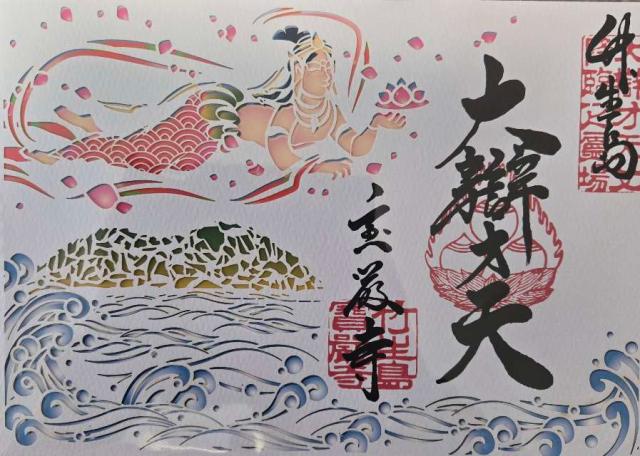 竹生島
大辯才天
宝厳寺
竹生島
寶嚴寺